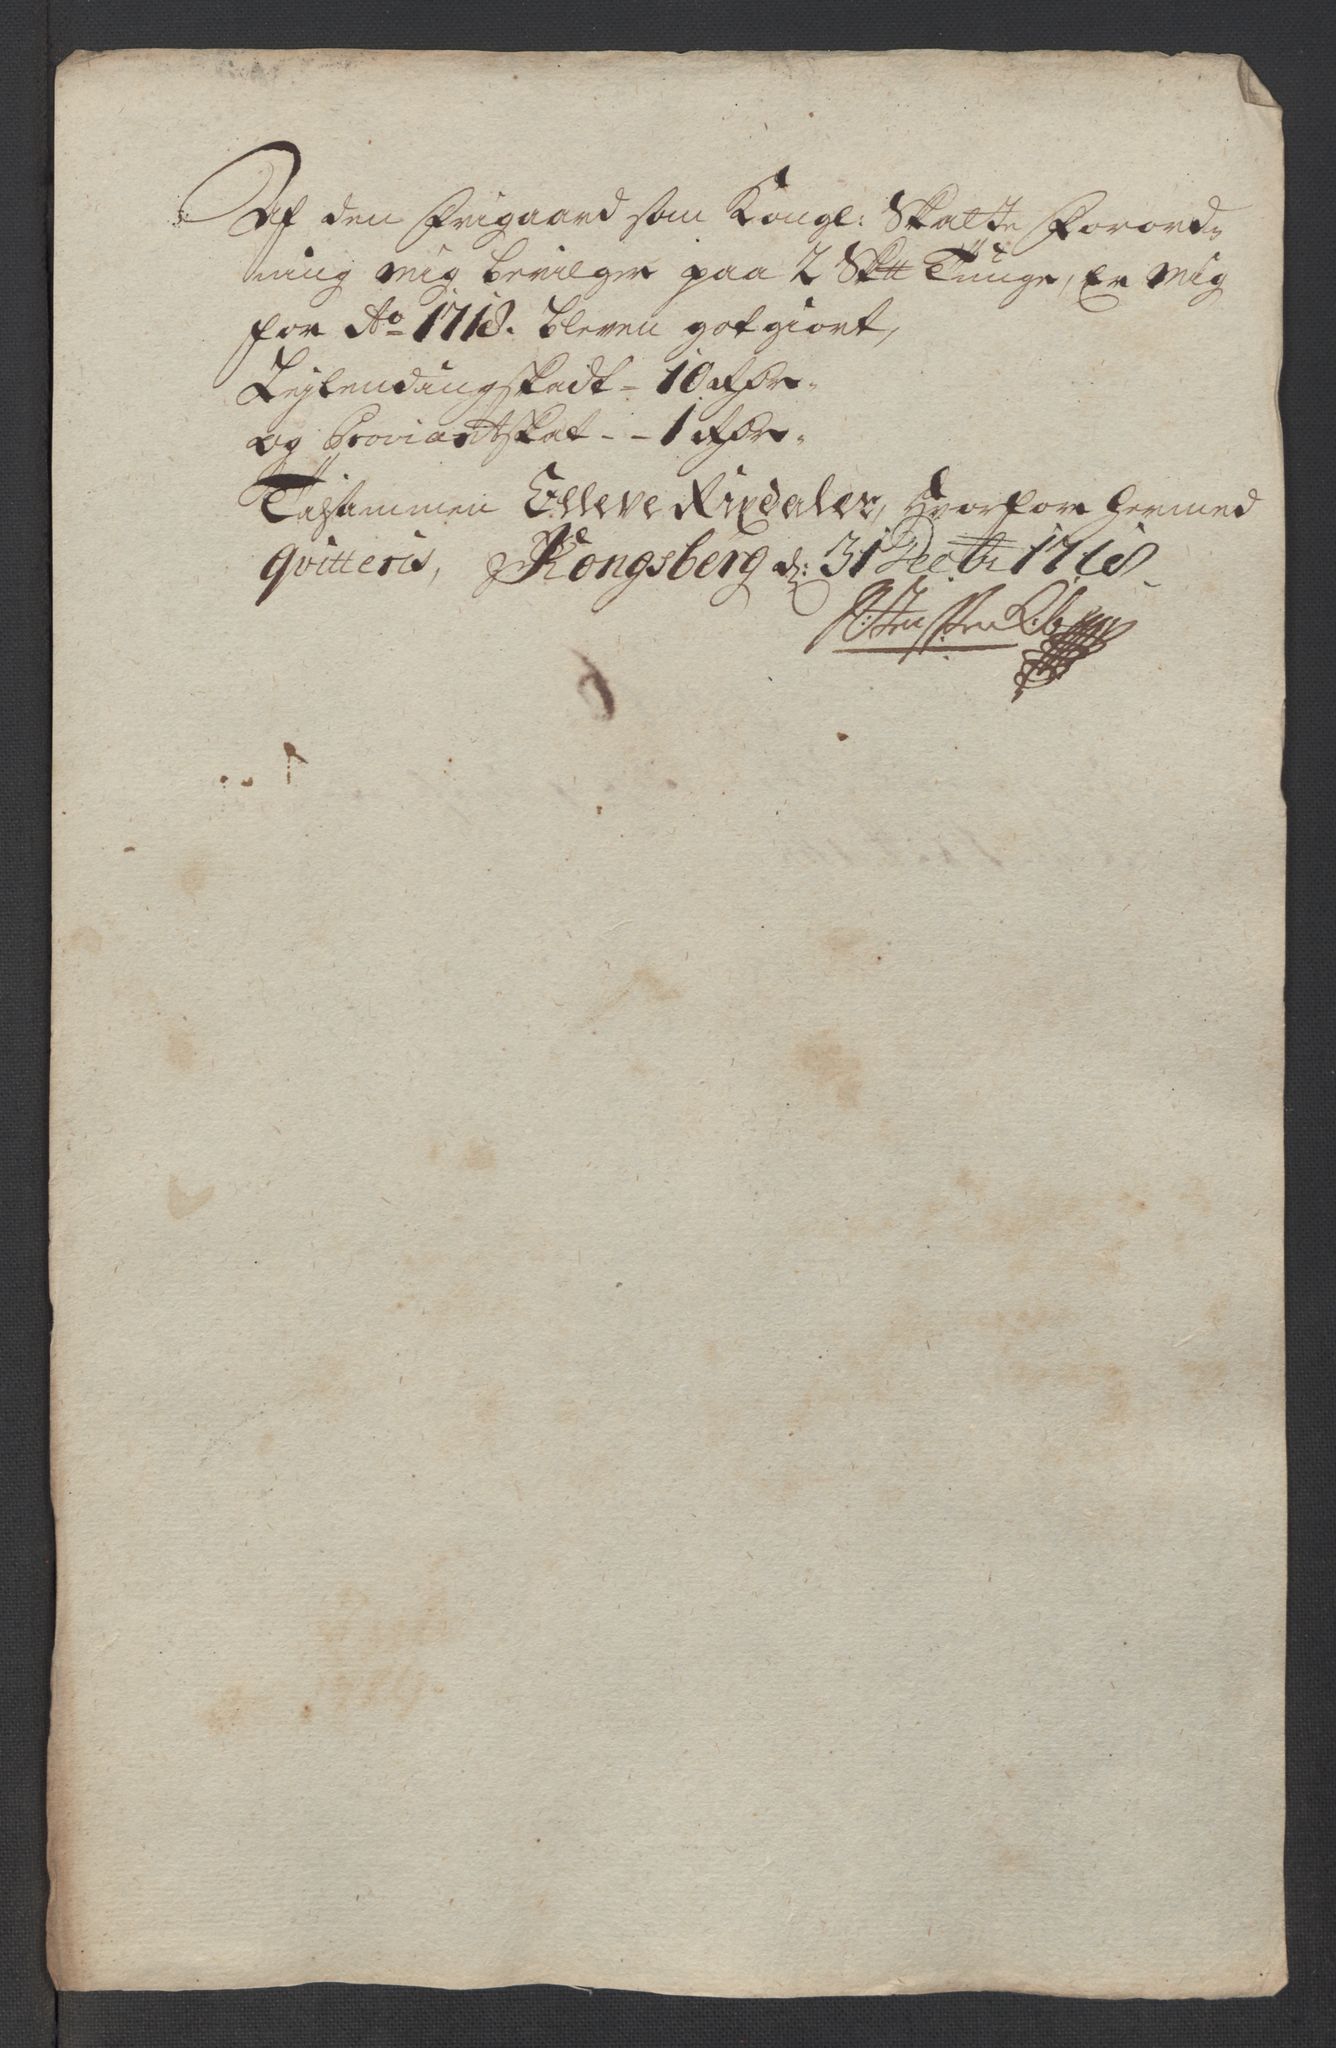 Af den Frigaard som Kongl: Skatte Forord-
ning mig bevilger paa 2 Sktt Tünge, Er mig
for Ao 1718. bleven gotgiort,
Lejlendingskadt - 10 Rdr.
og Proviantskat - - 1 Rdr.
Tilsammen Elleve Rixdaler, Hvorfore hermed
qvitteris, Kongsberg d: 31 Decbr 1718